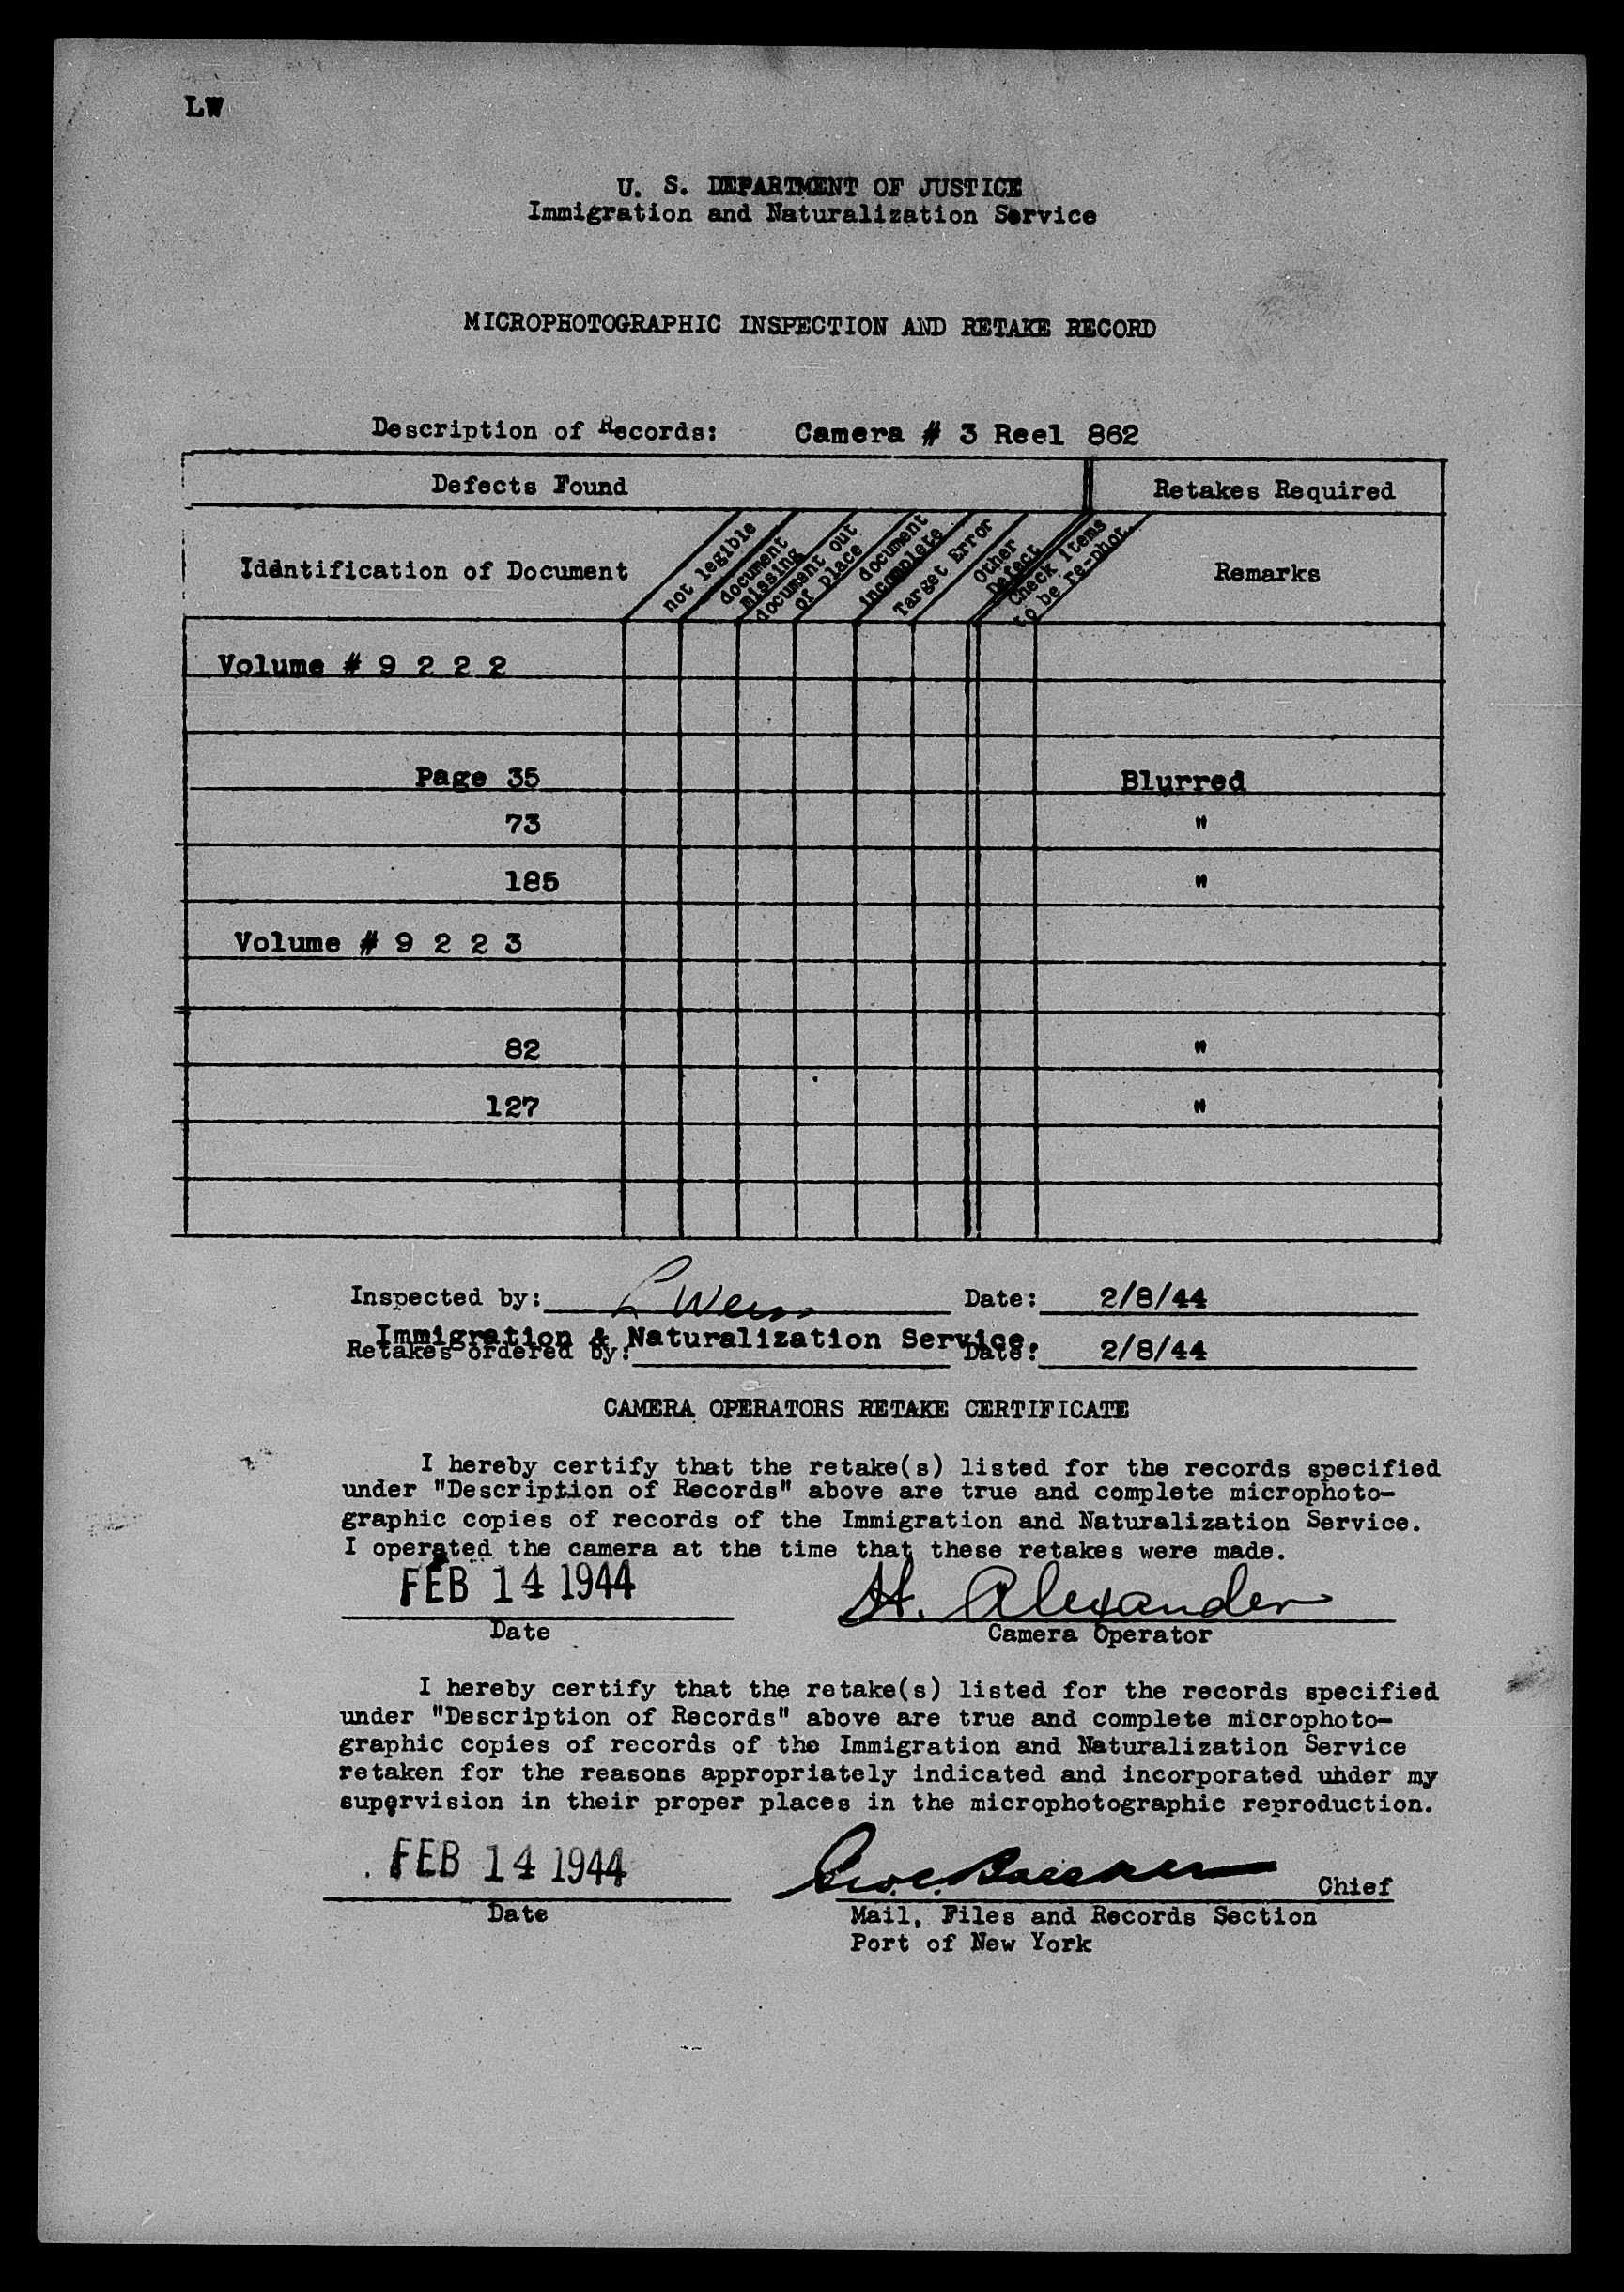 LW
U. S. DEPARTMENT OF JUSTICE
Immigration and Naturalization Service
MICROPHOTOGRAPHIC INSPECTION AND RETAKE RECORD
Description of Records: Camera # 3 Reel 862
Defects Found Retakes Required
Identification of Document
not legible
document missing
document out of place
document incomplete
Target Error
Other Defect
Check items to be re-phot.
Remarks
Volume # 9 2 2 2
Page 35 Blurred
73 "
185 "
Volume # 9 2 2 3
82 "
127 "
Inspected by: L Weiss Date: 2/8/44
Immigration & Naturalization Service.
Retakes ordered by: Date: 2/8/44
CAMERA OPERATORS RETAKE CERTIFICATE
I hereby certify that the retake(s) listed for the records specified
under "Description of Records" above are true and complete microphoto-
graphic copies of records of the Immigration and Naturalization Service.
I operated the camera at the time that these retakes were made.
FEB 14 1944 H. Alexander
Date Camera Operator
I hereby certify that the retake(s) listed for the records specified
under "Description of Records" above are true and complete microphoto-
graphic copies of records of the Immigration and Naturalization Service
retaken for the reasons appropriately indicated and incorporated uhder my
supervision in their proper places in the microphotographic reproduction.
FEB 14 1944 Chief
Date Mail, Files and Records Section
Port of New York